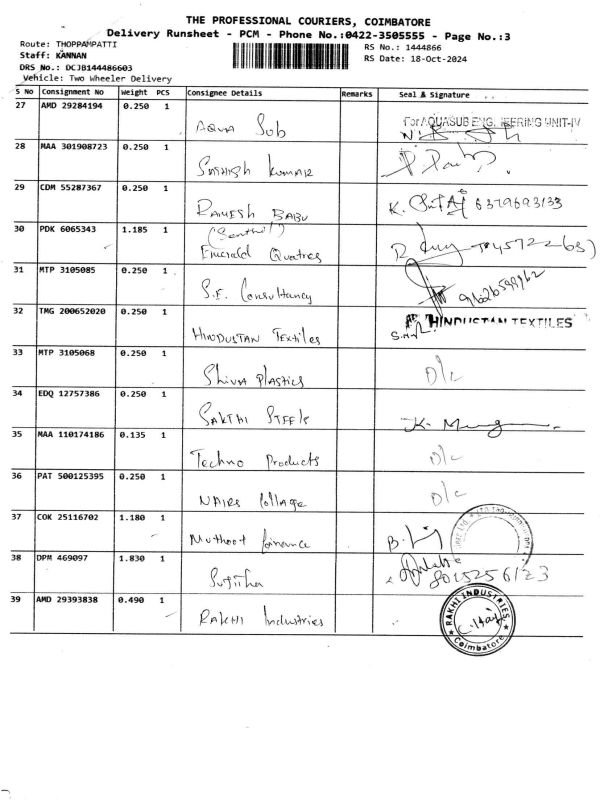 THE PROFESSIONAL COURIERS, COIMBATORE
Delivery Runsheet - PCM - Phone No.:0422-3505555 - Page No.:3
Route: THOPPAMPATTI
RS No.: 1444866
Staff: KANNAN
RS Date: 18-Oct-2024
DRS No.: DCJB144486603
Vehicle: Two Wheeler Delivery
S No Consignment No Weight PCS Consignee Details Remarks Seal & Signature
27 AMD 29284194 0.250 1 Aqua Sub For AQUASUB ENG. UNIT-IV
28 MAA 301908723 0.250 1 Sathish Kumar
29 CDM 55287367 0.250 1 Ramesh Babu K. 6379693133
30 PDK 6065343 1.185 1 (Senthil) Emerald
31 MTP 3105085 0.250 1 S.E. Consultancy
32 TMG 200652020 0.250 1 Hindustan Textiles HINDUSTAN TEXTILES
33 MTP 3105068 0.250 1 Shiva Plastics D/c
34 EDQ 12757386 0.250 1 Sakthi Steels K.
35 MAA 110174186 0.135 1 Techno Products D/c
36 PAT 500125395 0.250 1 D/c
37 COK 25116702 1.180 1 Muthoot finance B.
38 DPM 469097 1.830 1 Sujitha
39 AMD 29393838 0.490 1 Rakhi Industries RAKHI INDUSTRIES Coimbatore